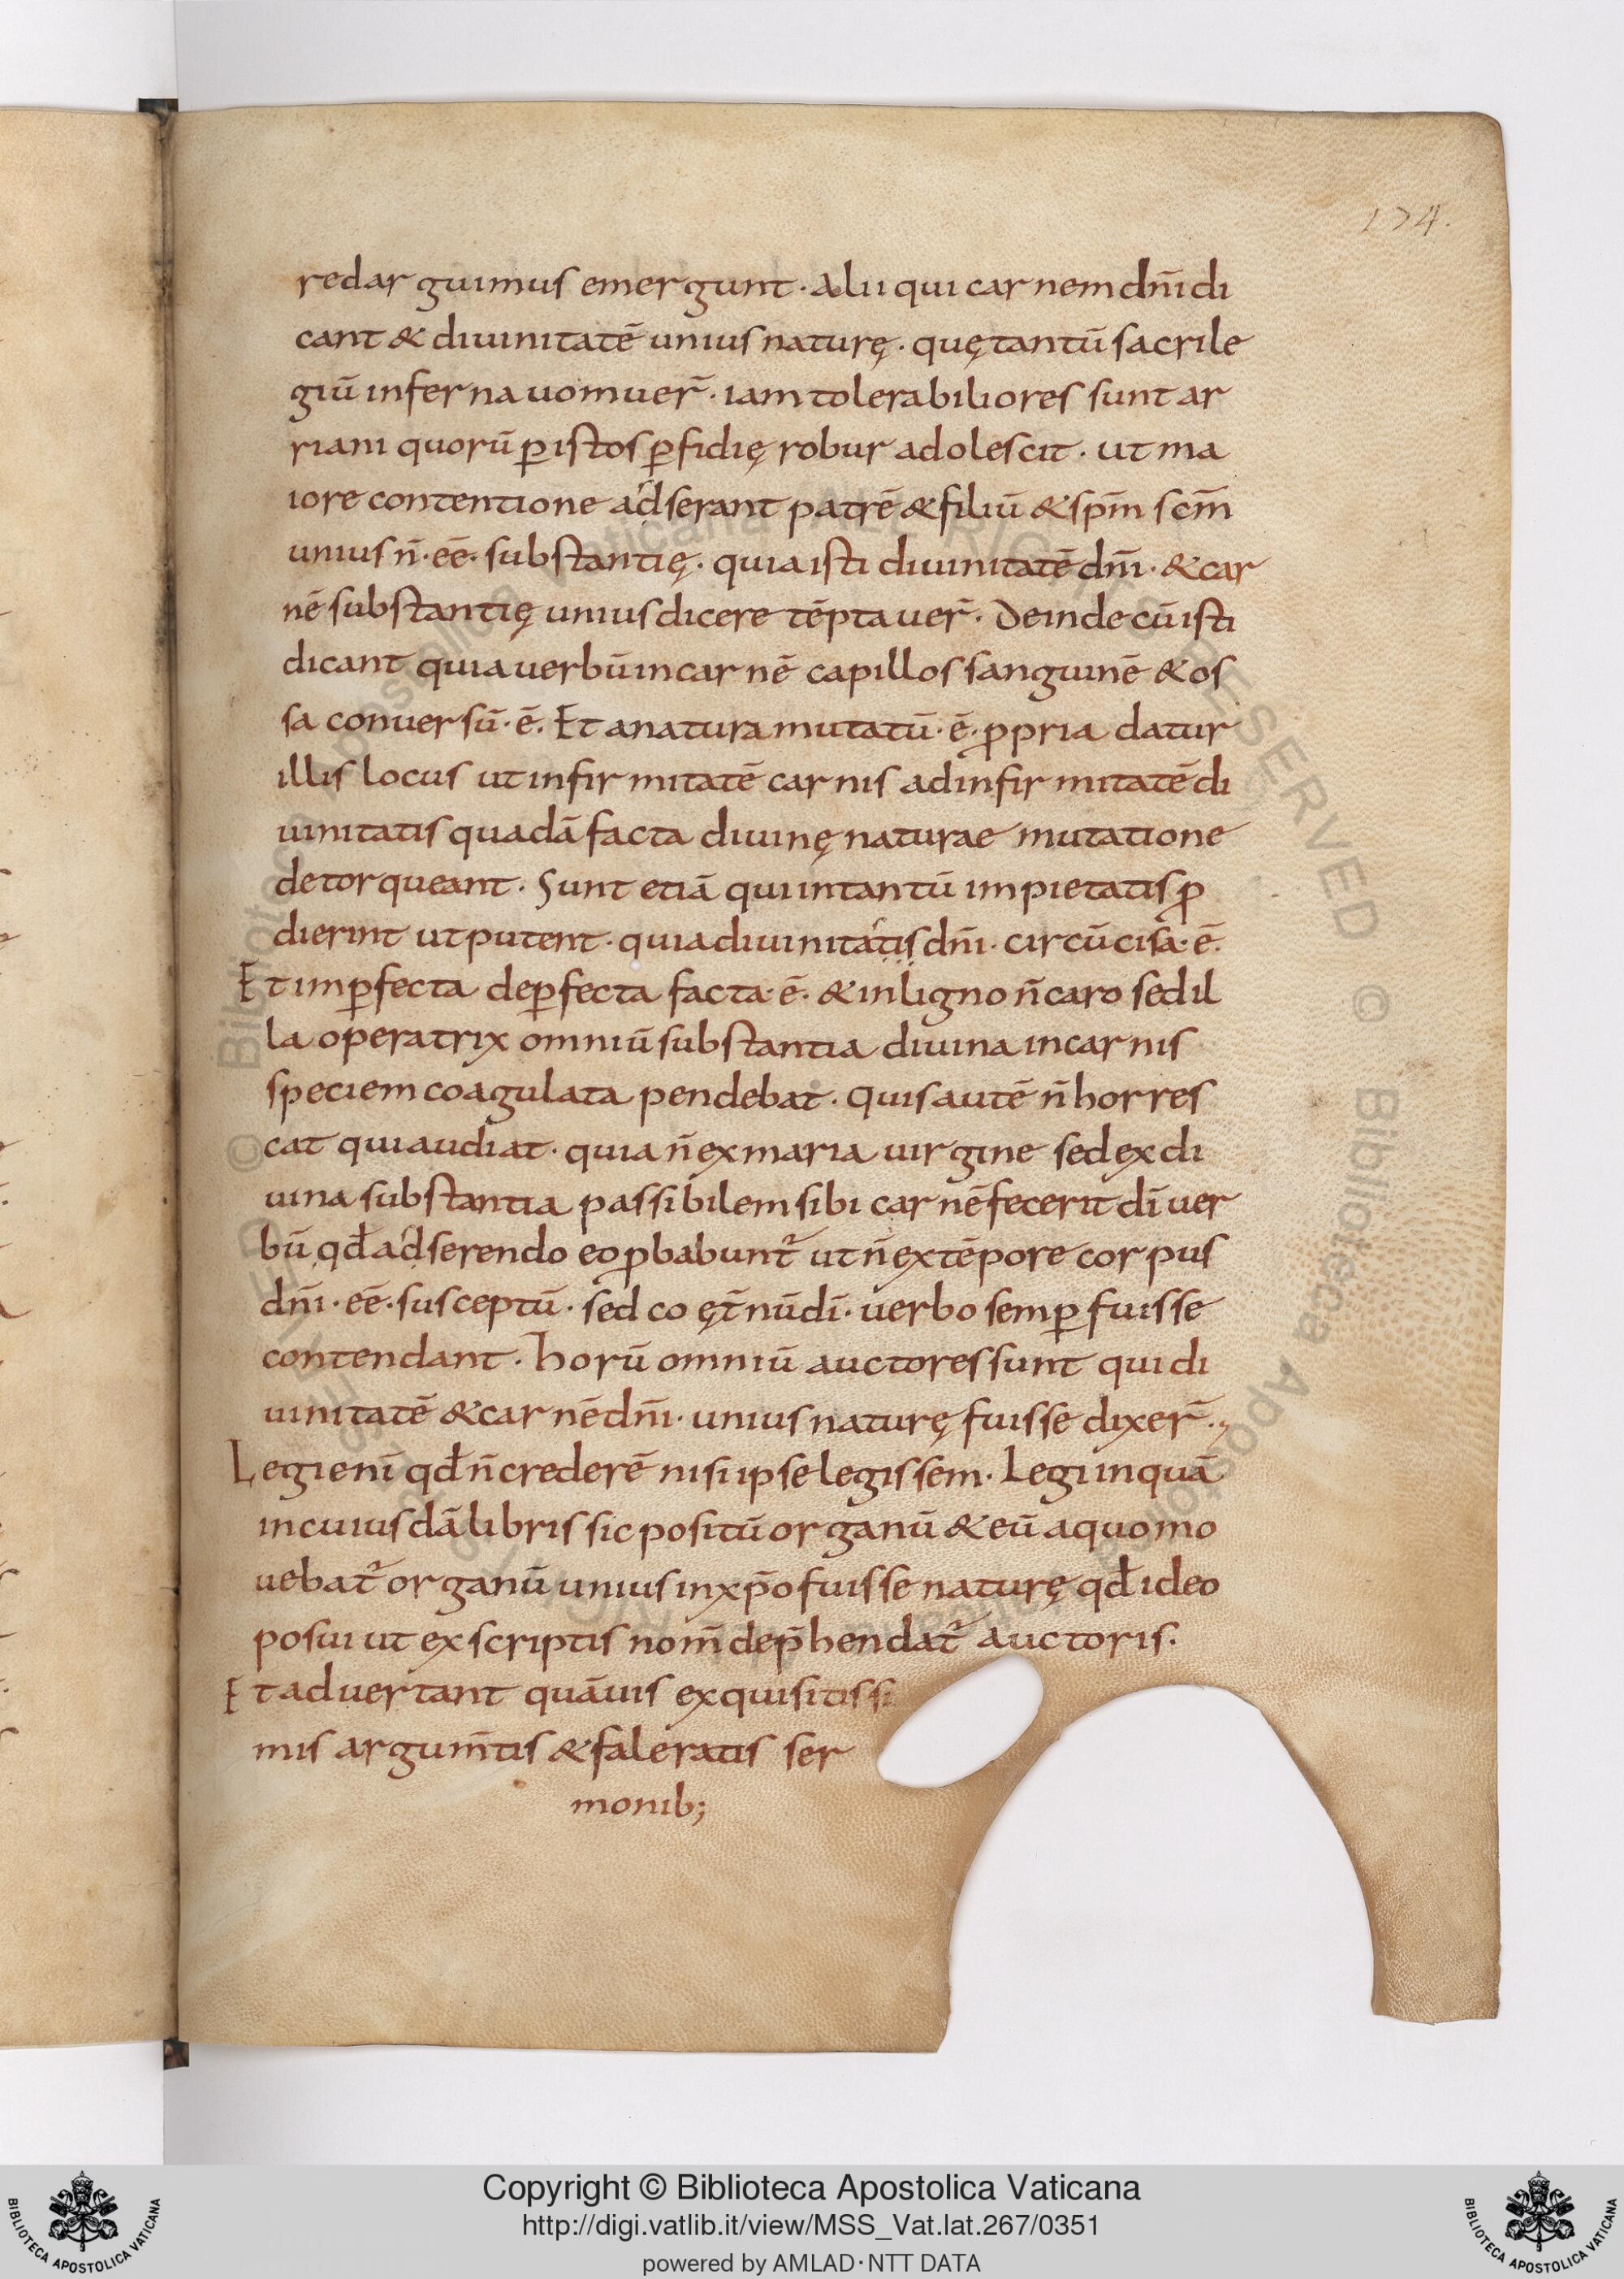 174.
redarguimus emergunt · Alii qui carnem dñi di
cant & diuinitatē unius naturę · quę tantū sacrile
giū inferna uomuer̄ · iam tolerabiliores sunt ar
riani quorū ꝑ istos ꝑfidię robur adolescit · ut ma
iore contentione adserant patrē & filiū & spm̄ scm̄
unius ñ · eē · substantię · quia isti diuinitatē dñi · & car
nē substantię unius dicere tēptauer̄ · Deinde cū isti
dicant quia uerbū in carnē capillos sanguinē & os
sa conuersū · ē · Et a natura mutatū · ē · ꝓpria datur
illis locus ut infirmitatē carnis ad infirmitatē di
uinitatis quadā facta diuinę naturae mutatione
detorqueant · Sunt etiā qui in tantū impietatis ꝓ
dierint ut putent · quia diuinitatis dñi · circūcisa · ē ·
Et imꝑfecta de ꝑfecta facta · ē · & in ligno ñ caro sed il
la operatrix omniū substantia diuina in carnis
speciem coagulata pendebat · Quis autē ñ horres
cat qui audiat · quia ñ ex maria uirgine sed ex di
uina substantia passibilem sibi carnē fecerit dī uer
bū qđ adserendo eo ꝓbabunt᷑ ut ñ ex tēpore corpus
dñi · eē · susceptū · sed co ęt̄nū dī · uerbo semꝑ fuisse
contendant · horū omniū auctores sunt qui di
uinitatē & carnē dñi · unius naturę fuisse dixer̄ ·,
Legi enī qđ ñ crederē nisi ipse legissem · Legi inquā
in cuiusdā libris sic positū organū & eū a quo mo
uebat᷑ organū unius in xp̄o fuisse naturę qđ ideo
posui ut ex scriptis nom̄ dep̄hendat᷑ auctoris ·
Et aduertant quāuis exquisitissi
mis argum̄tis & faleratis ser
monib;
Copyright © Biblioteca Apostolica Vaticana
http://digi.vatlib.it/view/MSS_Vat.lat.267/0351
powered by AMLAD · NTT DATA
BIBLIOTECA APOSTOLICA VATICANA
BIBLIOTECA APOSTOLICA VATICANA